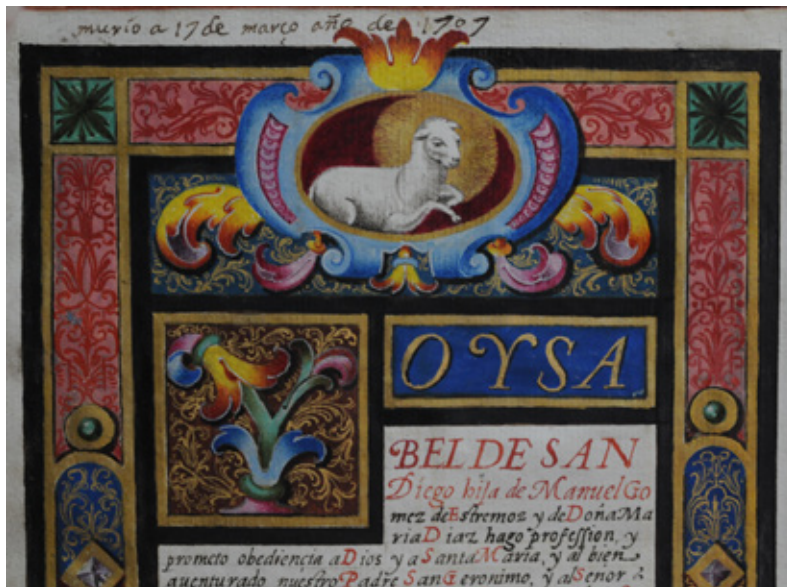 murio a 17 de março año de 1707
Y
OYSA
BEL DE SAN
Diego hija de Manuel Go
mez de Estremoz y de Doña Ma
ria Diaz hago profession, y
prometo obediencia a Dios y a Santa Maria, y al bien
auenturado nuestro Padre San Geronimo, y al Senor